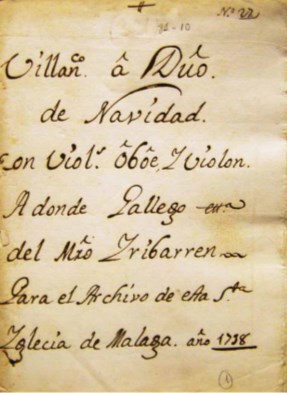 Nº 22
31-10
Villanco. â Dûo.
de Navidad.
con Viols. ôbôe, Y violon.
A donde Gallego etta.
del Mrô Yribarren
Para el Archivo de esta Sta
Yglecia de Malaga. año 1738
1